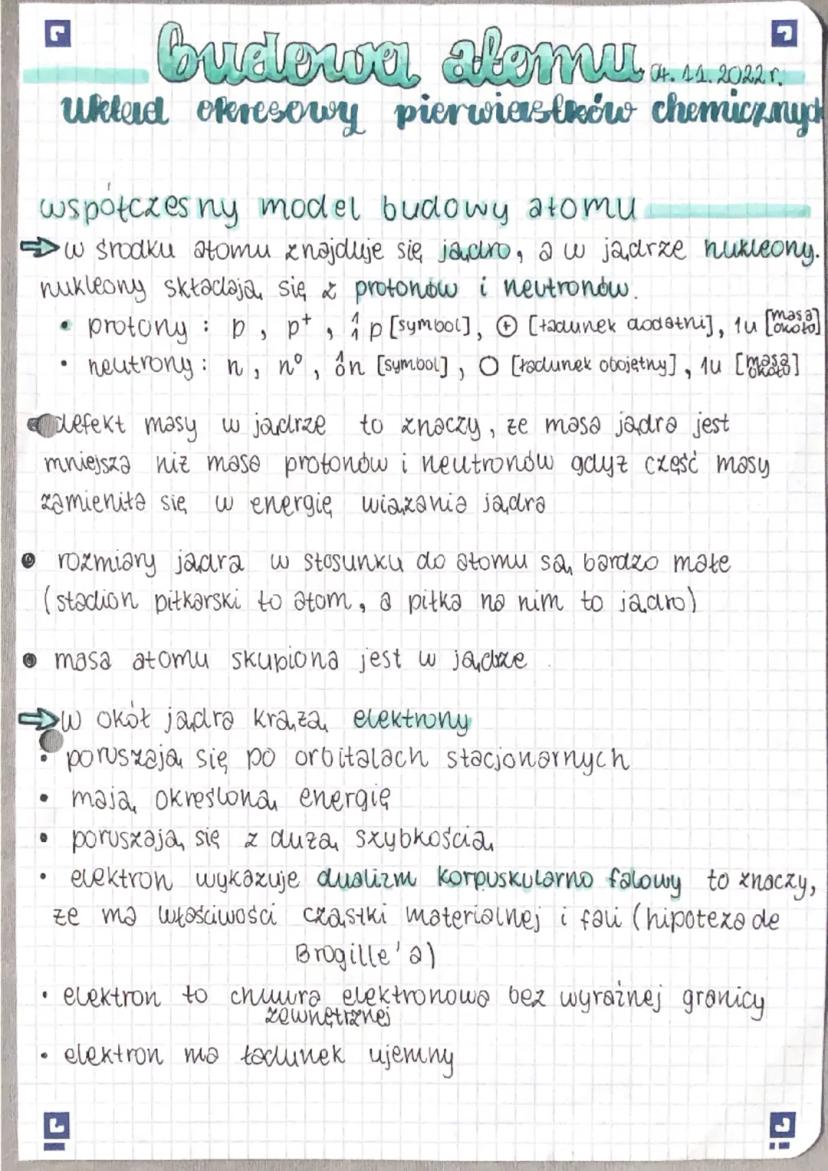 budowa atomu 04.11.2022r.
Układ okresowy pierwiastków chemicznych
współczesny model budowy atomu
⇨ w środku atomu znajduje się jądro, a w jądrze nukleony.
nukleony składają się z protonów i neutronów.
• protony : p, p⁺, ¹₁p [symbol], ⊕ [ładunek dodatni], 1u [masa około]
• neutrony : n, n⁰, ¹₀n [symbol], O [ładunek obojętny], 1u [masa około]
defekt masy w jądrze to znaczy, że masa jądra jest
mniejsza niż masa protonów i neutronów gdyż część masy
zamieniła się w energię wiązania jądra
• rozmiary jądra w stosunku do atomu są bardzo małe
(stadion piłkarski to atom, a piłka na nim to jądro)
• masa atomu skupiona jest w jądze
⇨ w okół jądra krążą elektrony
• poruszają się po orbitalach stacjonarnych
• mają określoną energię
• poruszają się z dużą szybkością
• elektron wykazuje dualizm korpuskularno falowy to znaczy,
że ma właściwości cząstki materialnej i fali (hipoteza de
Brogille'a)
• elektron to chmura elektronowa bez wyraźnej granicy
zewnętrznej
• elektron ma ładunek ujemny